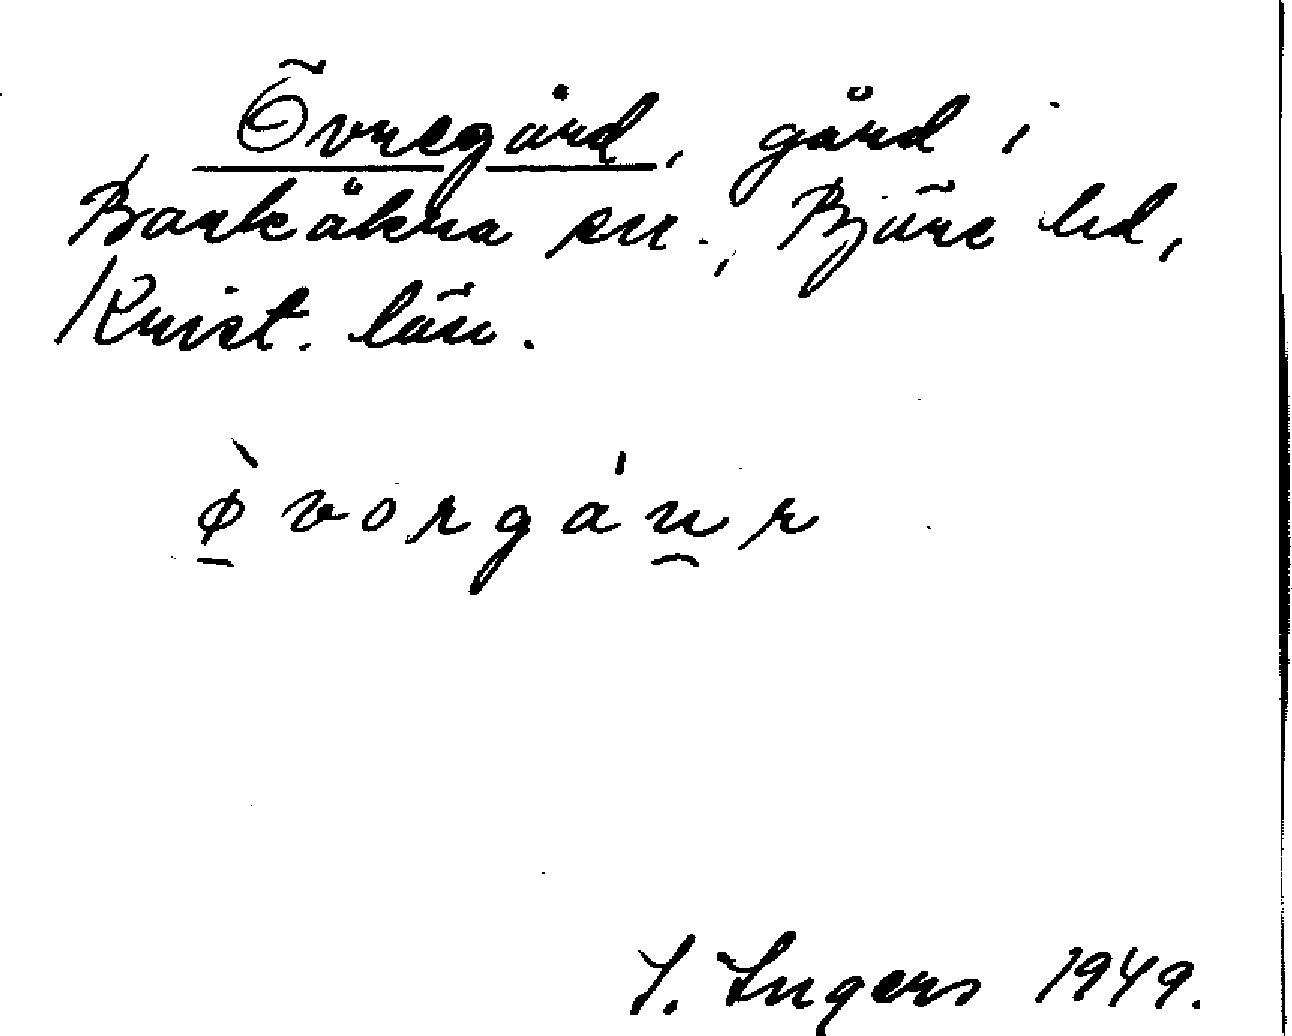 Övregård, gård i
Barkåkra sn., Bjäre hd,
Krist. län.
ø̠̀vorgá u̯r
I. Ingers 1949.